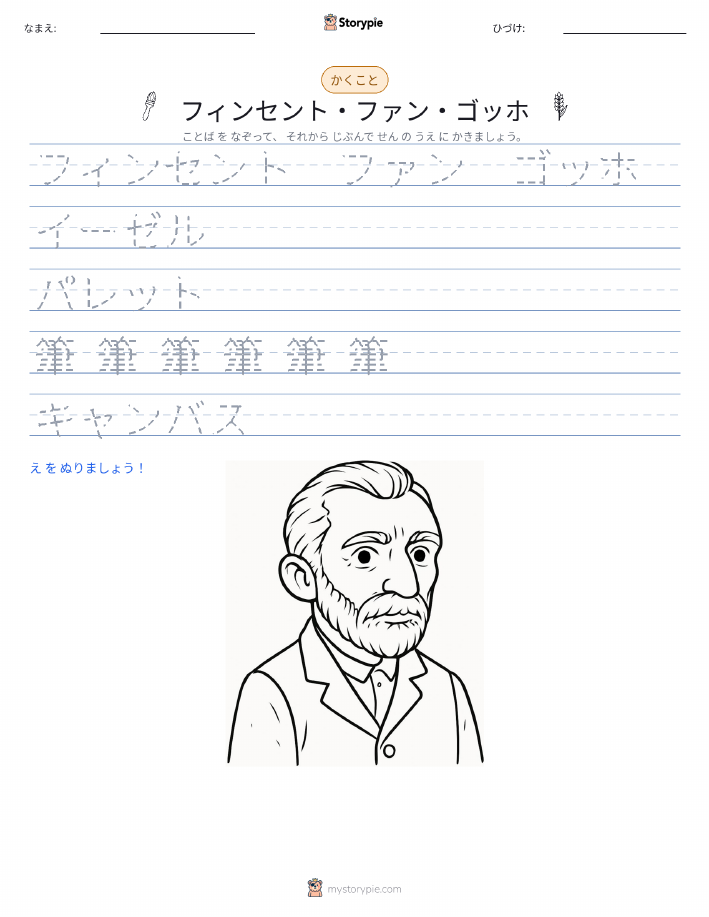 なまえ:
Storypie
ひづけ:
かくこと
フィンセント・ファン・ゴッホ
ことば を なぞって、 それから じぶんで せん の うえ に かきましょう。
フィンセント ファン ゴッホ
イーゼル
パレット
筆 筆 筆 筆 筆 筆
キャンバス
え を ぬりましょう！
mystorypie.com